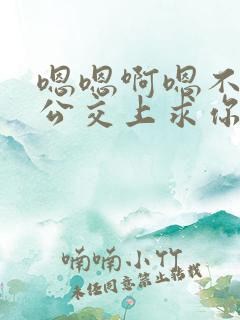 嗯嗯啊嗯不
公交上求你
喃喃小竹
未经同意禁止转载